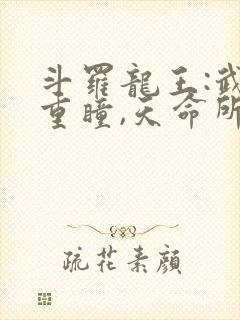 斗羅龍王:武
重瞳,天命所
疏花素顏